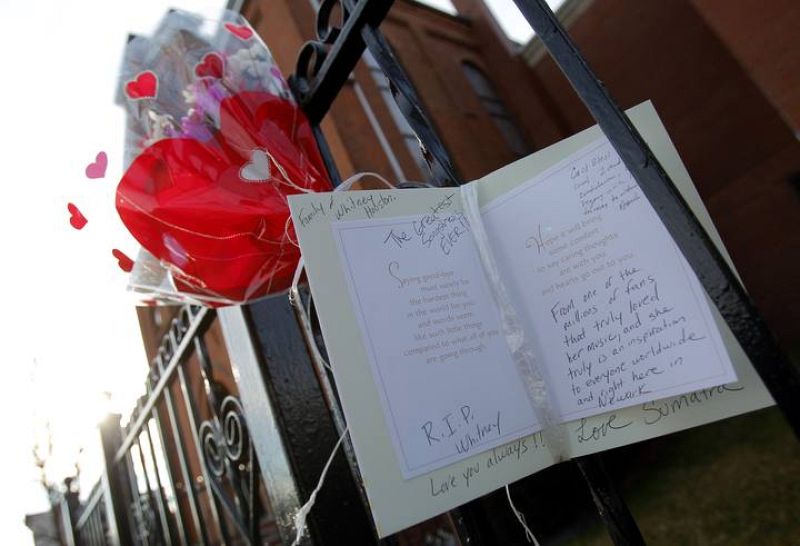 Family of Whitney
Houston.
The Greatest
Songstress
EVER!!
Saying good-bye
must surely be
the hardest thing
in the world for you,
and words seem
like such little things
compared to what all of you
are going through.
R.I.P.
Whitney
Love you always!!
God Bless
Hope it will bring
some comfort
to say caring thoughts
are with you
and hearts go out to you.
From one of the
millions of fans
that truly loved
her music, and she
truly is an inspiration
to everyone worldwide
and right here in
Newark
Love Sumatra